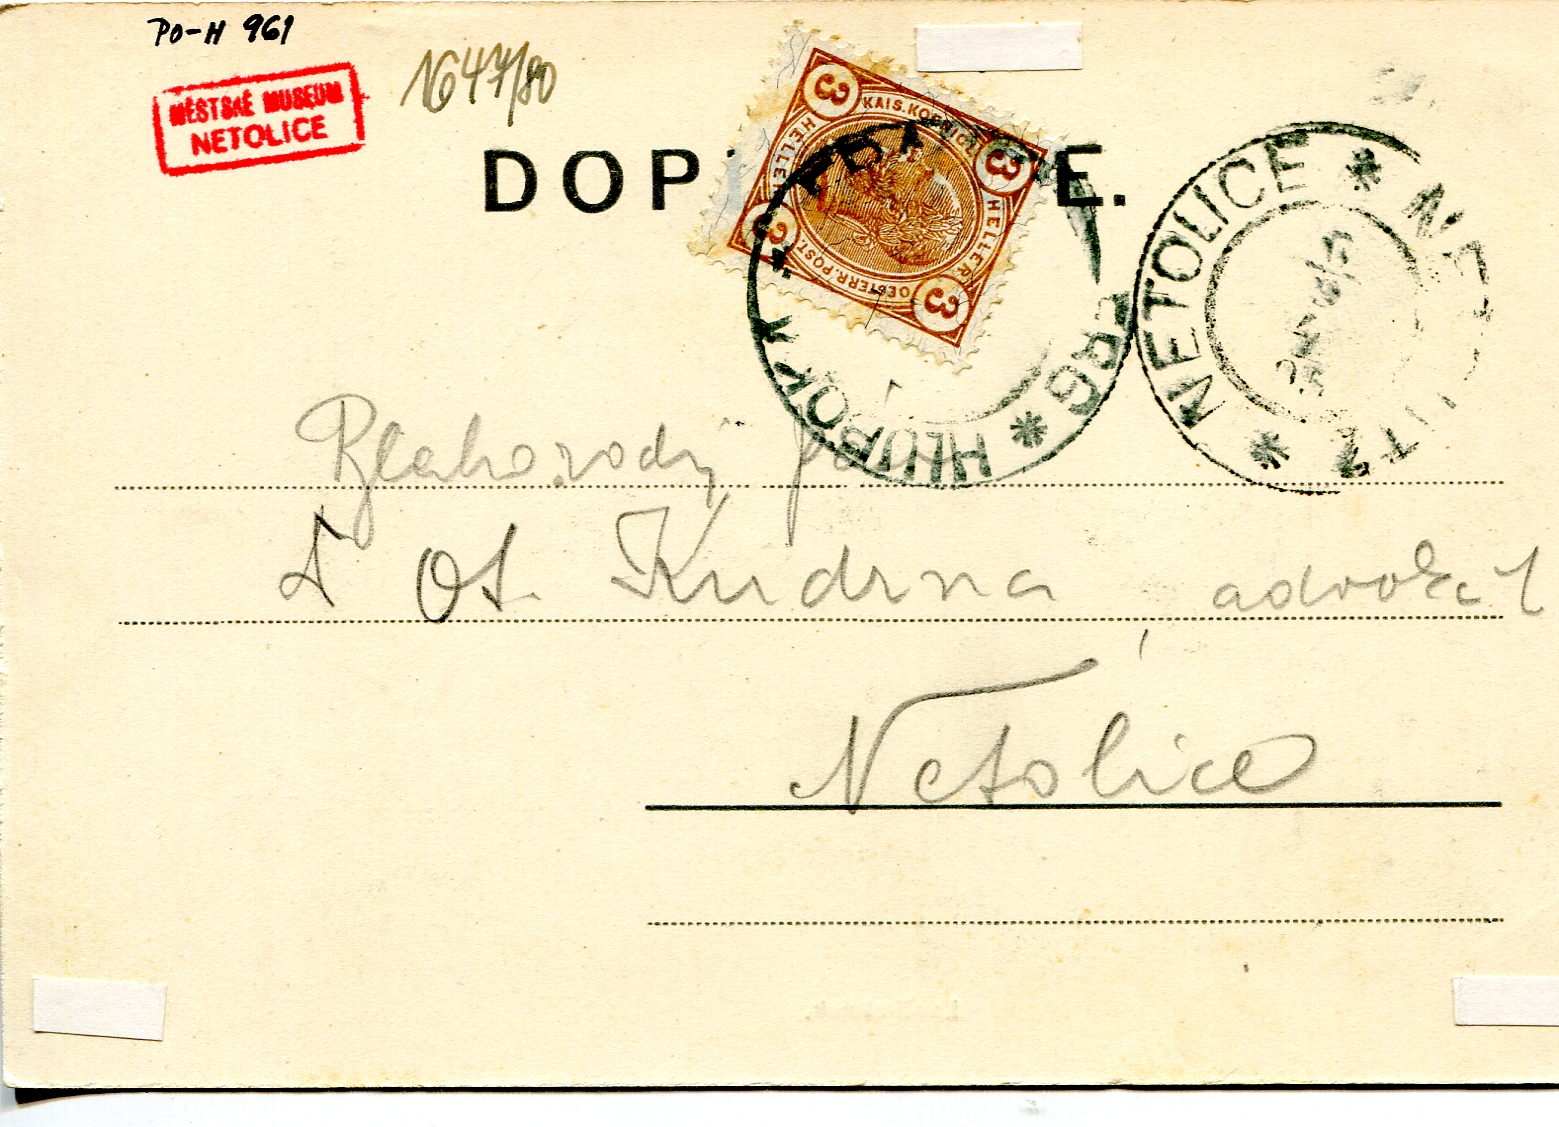 PO-H 961
MĚSTSKÉ MUSEUM
NETOLICE
1647/80
DOP E.
3 KAIS. KOENIGL. 3
HELLER HELLER
3 OESTERR. POST 3
HLUBOKÁ * RG *
* NETOLICE *
Blahorodý pán
Ot. Kudrna advokát
Netolice